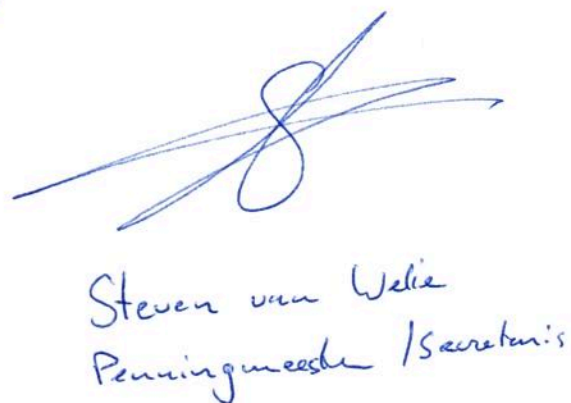 Steven van Welie
Penningmeester / Secretaris